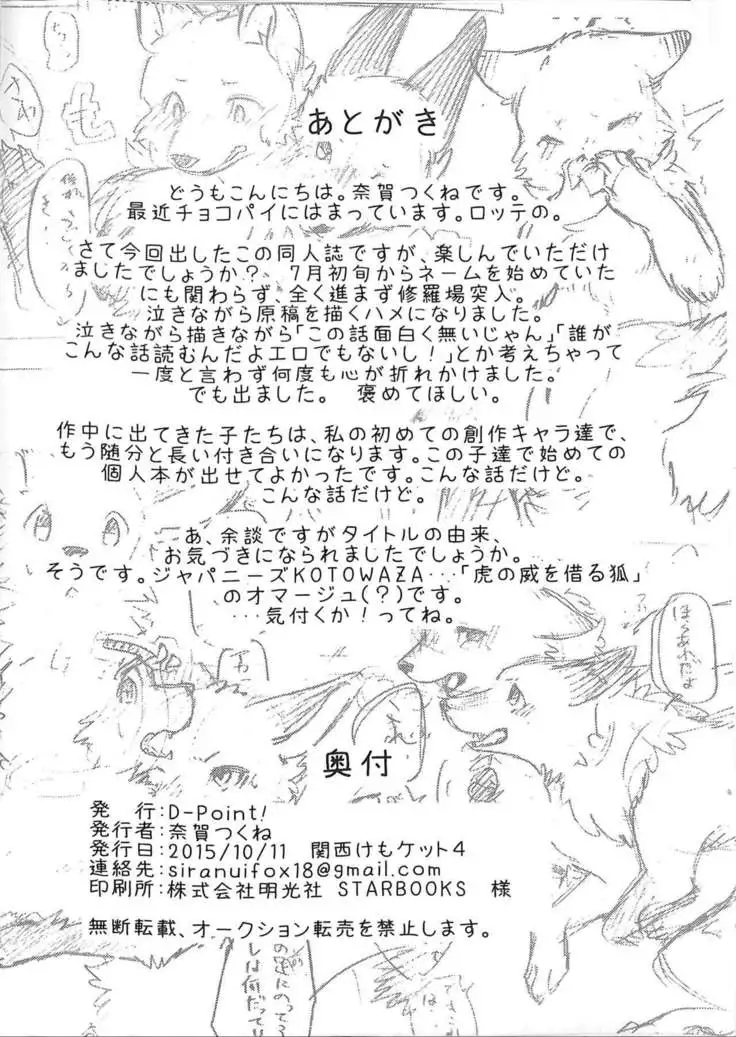 あとがき
どうもこんにちは。奈賀つくねです。
最近チョコパイにはまっています。ロッテの。
さて今回出したこの同人誌ですが、楽しんでいただけ
ましたでしょうか？　7月初旬からネームを始めていた
にも関わらず、全く進まず修羅場突入。
泣きながら原稿を描くハメになりました。
泣きながら描きながら「この話面白く無いじゃん」「誰が
こんな話読むんだよエロでもないし！」とか考えちゃって
一度と言わず何度も心が折れかけました。
でも出ました。　褒めてほしい。
作中に出てきた子たちは、私の初めての創作キャラ達で、
もう随分と長い付き合いになります。この子達で始めての
個人本が出せてよかったです。こんな話だけど。
こんな話だけど。
あ、余談ですがタイトルの由来、
お気づきになられましたでしょうか。
そうです。ジャパニーズKOTOWAZA…「虎の威を借る狐」
のオマージュ(？)です。
…気付くか！ってね。
奥付
発　行：D-Point!
発行者：奈賀つくね
発行日：2015/10/11　関西けもケット4
連絡先：siranuifox18@gmail.com
印刷所：株式会社明光社 STARBOOKS　様
無断転載、オークション転売を禁止します。